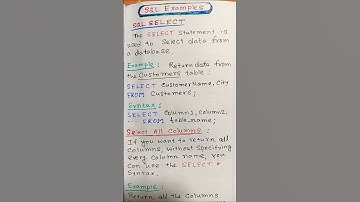 SQL Examples
SQL SELECT
The SELECT statement is
used to select data from
a database.
Example : Return data from
the Customers table :
SELECT CustomerName, City
FROM Customers ;
Syntax :
SELECT Column1, Column2,
... FROM table_name;
Select All Columns :
If you want to return all
Columns, without specifying
every Column name, you
Can use the SELECT *
Syntax.
Example :
Return all the Columns